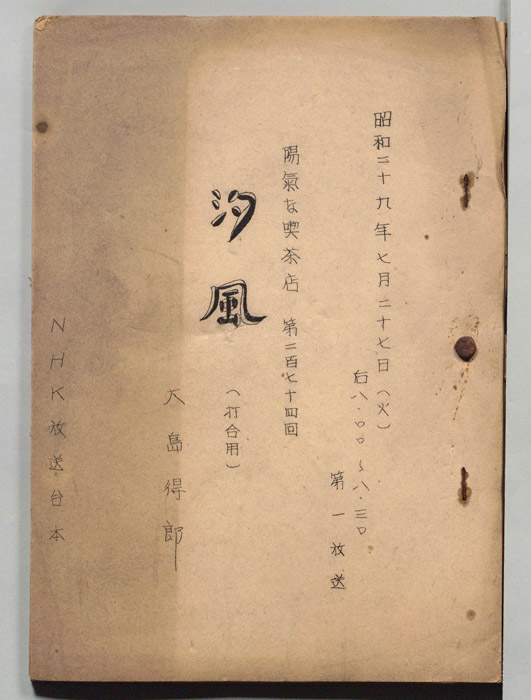 昭和二十九年七月二十七日（火）
后八.〇〇～八.三〇
第一放送
陽氣な喫茶店 第二百七十四回
汐風
（打合用）
大島得郎
NHK放送台本